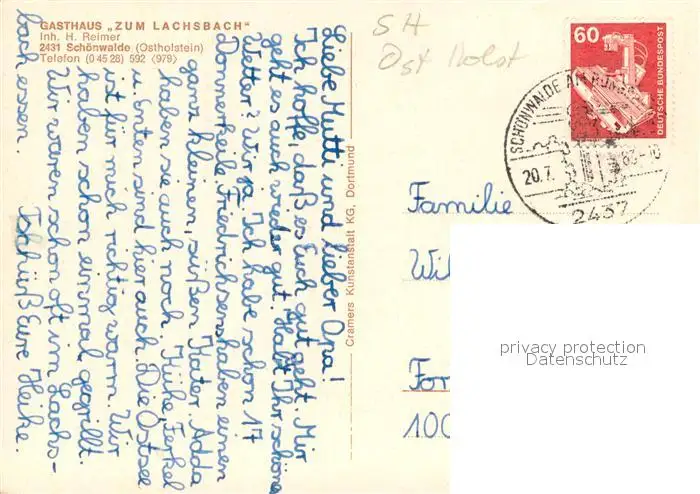 GASTHAUS „ZUM LACHSBACH"
Inh. H. Reimer
2431 Schönwalde (Ostholstein)
Telefon (0 45 28) 592 (979)
Liebe Mutti und lieber Opa!
Ich hoffe, daß es Euch gut geht. Mir
geht es auch wieder gut. Habt Ihr schöne
Wetter? Wir ja. Ich habe schon 17
Donnerkeile. Friedrichsens haben einen
ganz kleinen, süßen Kater. Adda
haben sie auch noch. Kühe, Ferkel
u. Enten sind hier auch. Die Ostsee
ist für mich richtig warm. Wir
haben schon einmal gegrillt.
Wir waren schon oft im Lachs-
bach essen. Tschüß Eure Heike.
Cramers Kunstanstalt KG, Dortmund
SH
Ost Holst
60
DEUTSCHE BUNDESPOST
SCHÖNWALDE AM BUNGS
20.7. 83-10
2437
Familie
Wil
For
100
privacy protection
Datenschutz